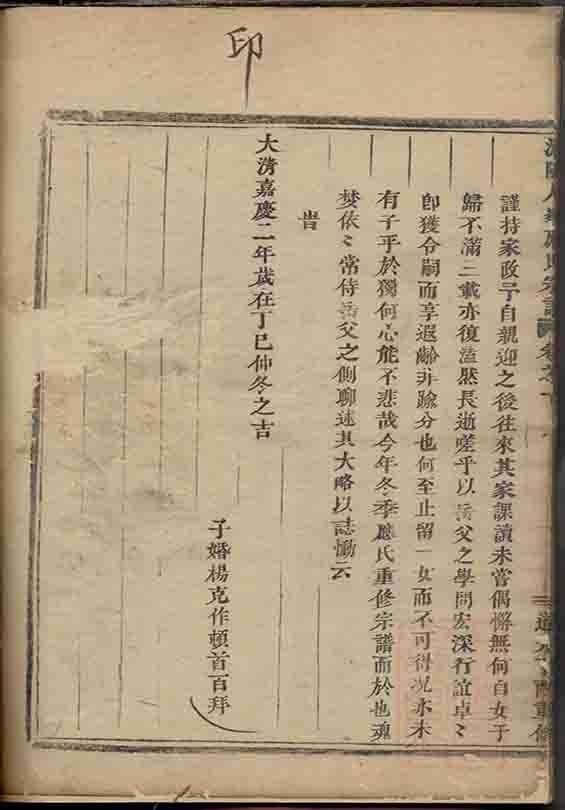 印
謹持家政予自親迎之後往來其家課讀未嘗偶懈無何自女于
歸不滿三載亦復溘然長逝嗟乎以岳父之學問宏深行誼卓〻
卽獲令嗣而享遐齡非踰分也何至止留一女而不可得况亦未
有子乎於獨何心能不悲哉今年冬季應氏重修宗譜而於也魂
夢依〻常侍岳父之側聊述其大略以誌慟云
旹
大清嘉慶二年歲在丁巳仲冬之吉
子婿楊克作頓首百拜